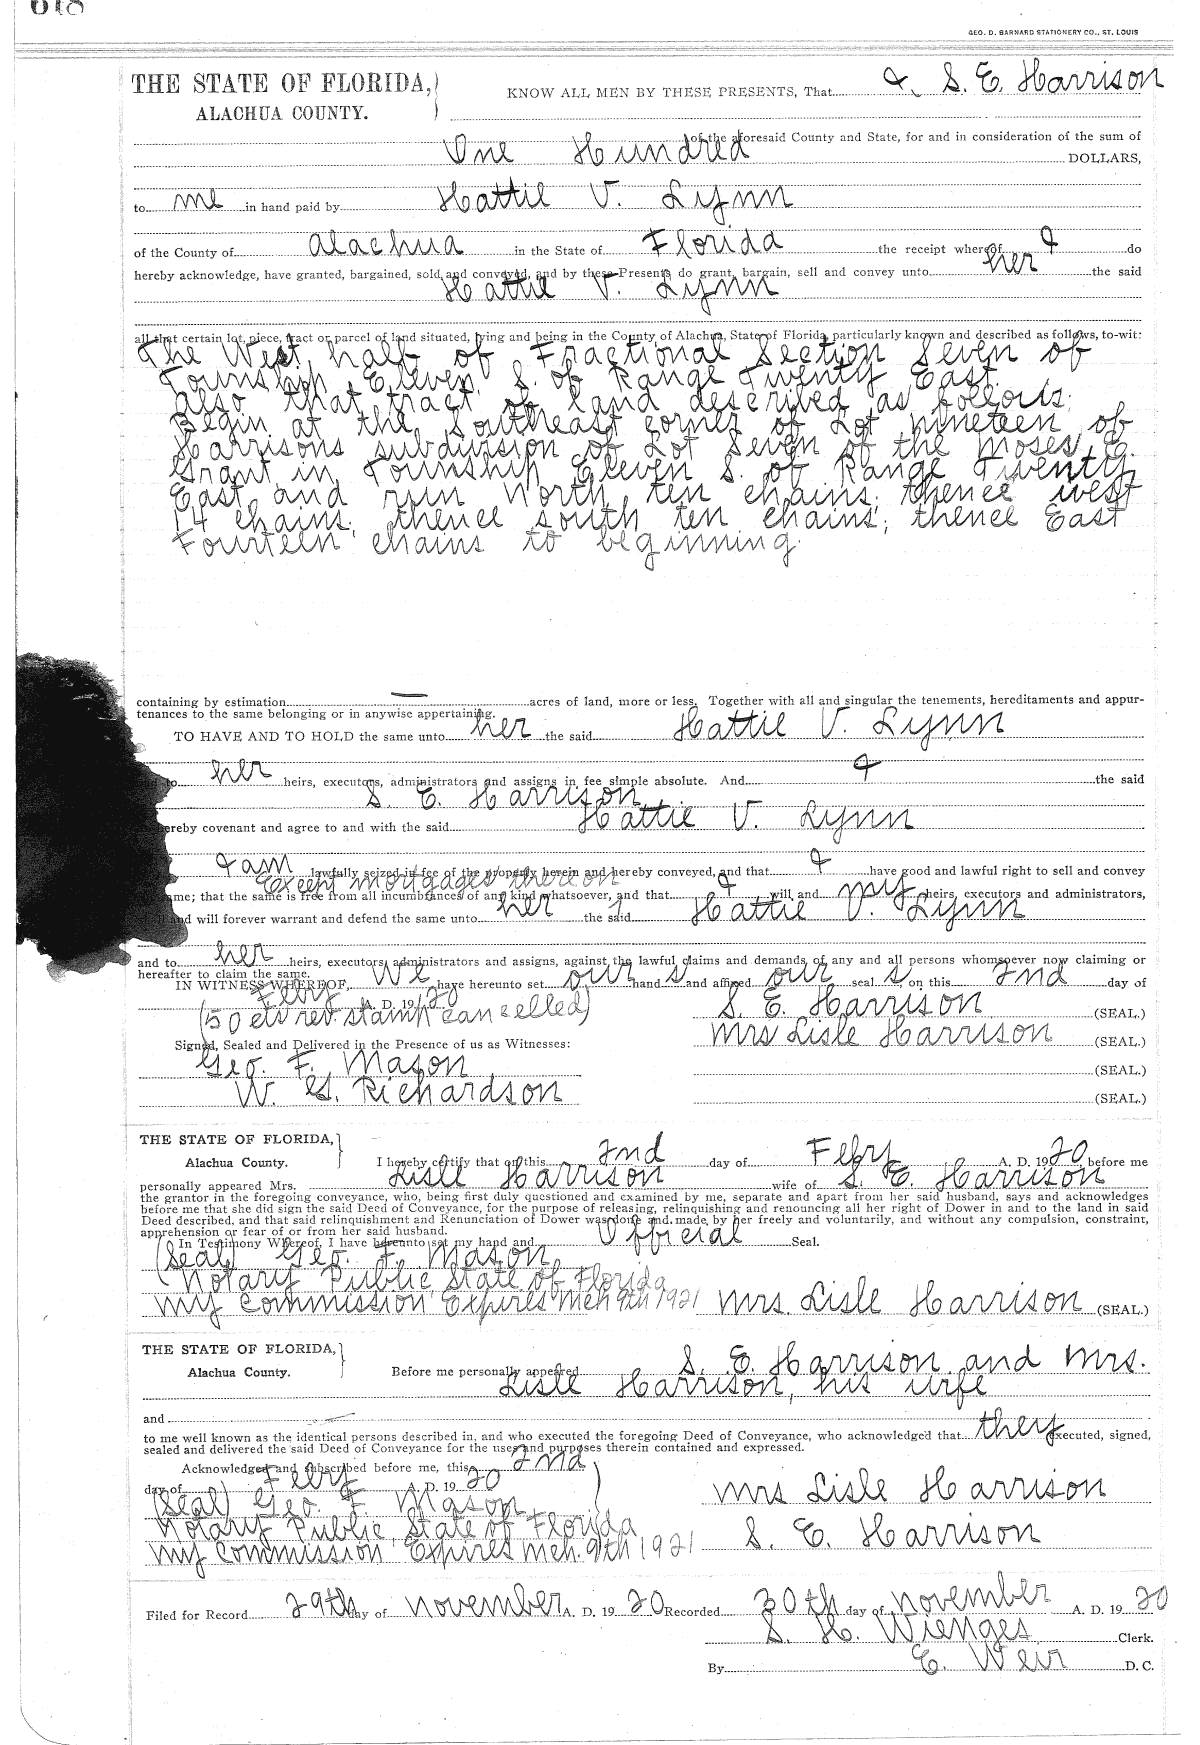 GEO. D. BARNARD STATIONERY CO., ST. LOUIS
THE STATE OF FLORIDA, KNOW ALL MEN BY THESE PRESENTS, That I, S. E. Harrison
ALACHUA COUNTY.
of the aforesaid County and State, for and in consideration of the sum of
One Hundred DOLLARS,
to me in hand paid by Hattie V. Lynn
of the County of Alachua in the State of Florida the receipt whereof I do
hereby acknowledge, have granted, bargained, sold and conveyed, and by these Presents do grant, bargain, sell and convey unto her the said
Hattie V. Lynn
all that certain lot, piece, tract or parcel of land situated, lying and being in the County of Alachua, State of Florida, particularly known and described as follows, to-wit:
The West half of Fractional Section Seven of
Township Eleven S. of Range Twenty East.
Also that tract of land described as follows:
Begin at the Southeast corner of Lot nineteen of
Harrisons subdivision of Lot Seven of the Moses E.
Grant in Township Eleven S. of Range Twenty
East and run North ten chains; thence west
14 chains; thence south ten chains; thence East
Fourteen chains to beginning.
containing by estimation — acres of land, more or less. Together with all and singular the tenements, hereditaments and appur-
tenances to the same belonging or in anywise appertaining.
TO HAVE AND TO HOLD the same unto her the said Hattie V. Lynn
to her heirs, executors, administrators and assigns in fee simple absolute. And I the said
S. E. Harrison
hereby covenant and agree to and with the said Hattie V. Lynn
I am lawfully seized in fee of the property herein and hereby conveyed, and that I have good and lawful right to sell and convey
Except mortgages thereon
same; that the same is free from all incumbrances of any kind whatsoever, and that I will, and my heirs, executors and administrators,
and will forever warrant and defend the same unto her the said Hattie V. Lynn
and to her heirs, executors, administrators and assigns, against the lawful claims and demands of any and all persons whomsoever now claiming or
hereafter to claim the same.
IN WITNESS WHEREOF, We have hereunto set our hand s and affixed our seal s on this 2nd day of
Feby A. D. 1920 S. E. Harrison (SEAL.)
(50 cts rev stamp cancelled) Mrs Lisle Harrison (SEAL.)
Signed, Sealed and Delivered in the Presence of us as Witnesses:
Geo. F. Mason (SEAL.)
W. G. Richardson (SEAL.)
THE STATE OF FLORIDA,
Alachua County. I hereby certify that on this 2nd day of Feby A. D. 1920, before me
personally appeared Mrs. Lisle Harrison wife of S. E. Harrison
the grantor in the foregoing conveyance, who, being first duly questioned and examined by me, separate and apart from her said husband, says and acknowledges
before me that she did sign the said Deed of Conveyance, for the purpose of releasing, relinquishing and renouncing all her right of Dower in and to the land in said
Deed described, and that said relinquishment and Renunciation of Dower was done and made by her freely and voluntarily, and without any compulsion, constraint,
apprehension or fear of or from her said husband.
In Testimony Whereof, I have hereunto set my hand and Official Seal.
(Seal) Geo. F. Mason
Notary Public State of Florida
My Commission Expires Mch 9th 1921 Mrs. Lisle Harrison (SEAL.)
THE STATE OF FLORIDA,
Alachua County. Before me personally appeared S. E. Harrison and Mrs.
Lisle Harrison, his wife
and
to me well known as the identical persons described in, and who executed the foregoing Deed of Conveyance, who acknowledged that they executed, signed,
sealed and delivered the said Deed of Conveyance for the uses and purposes therein contained and expressed.
Acknowledged and subscribed before me, this 2nd
day of Feby A. D. 1920
(Seal) Geo. F. Mason Mrs Lisle Harrison
Notary Public, State of Florida
My Commission Expires Mch. 9th 1921 S. E. Harrison
Filed for Record 29th day of November A. D. 1920 Recorded 30th day of November A. D. 1920
S. H. Wienges Clerk.
By E. Weir D. C.